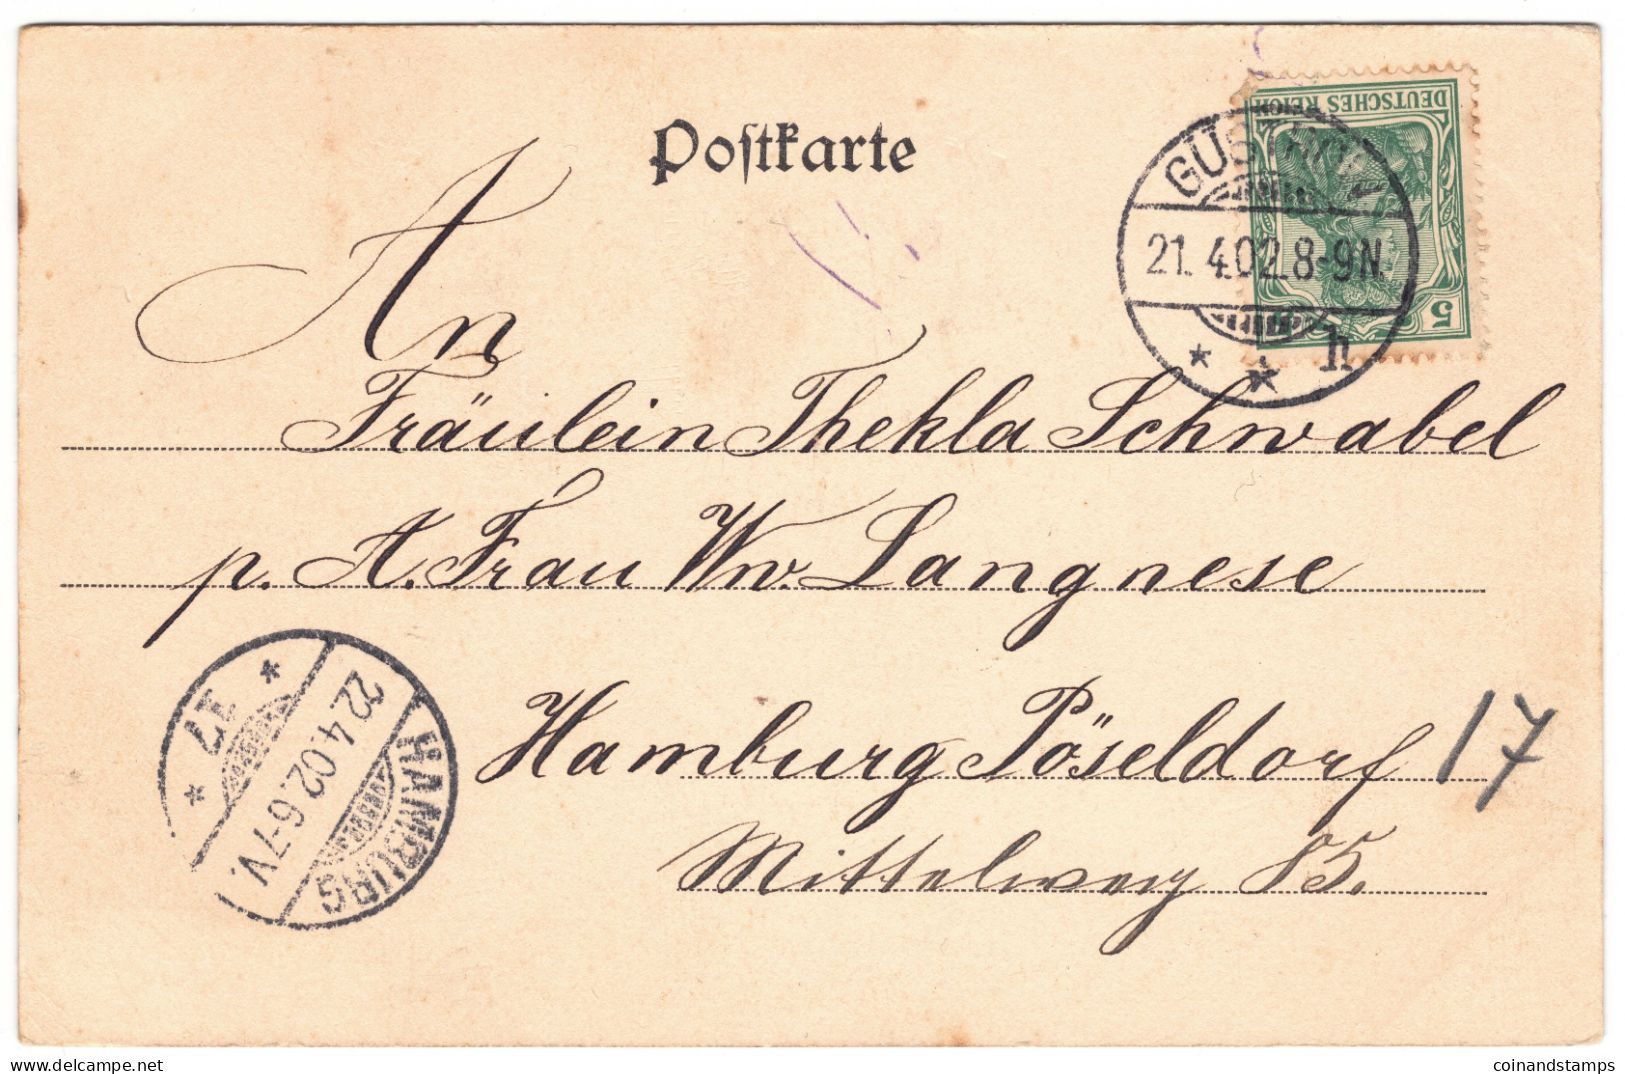 Postkarte
DEUTSCHES REICH
5
21.4.02.8-9N.
h
An
Fräulein Thekla Schwabel
p. A. Frau Ww. Langnese
Hamburg Pöseldorf 17
Mittelweg 85.
HAMBURG
22.4.02.6-7V.
* 17 *
coinandstamps